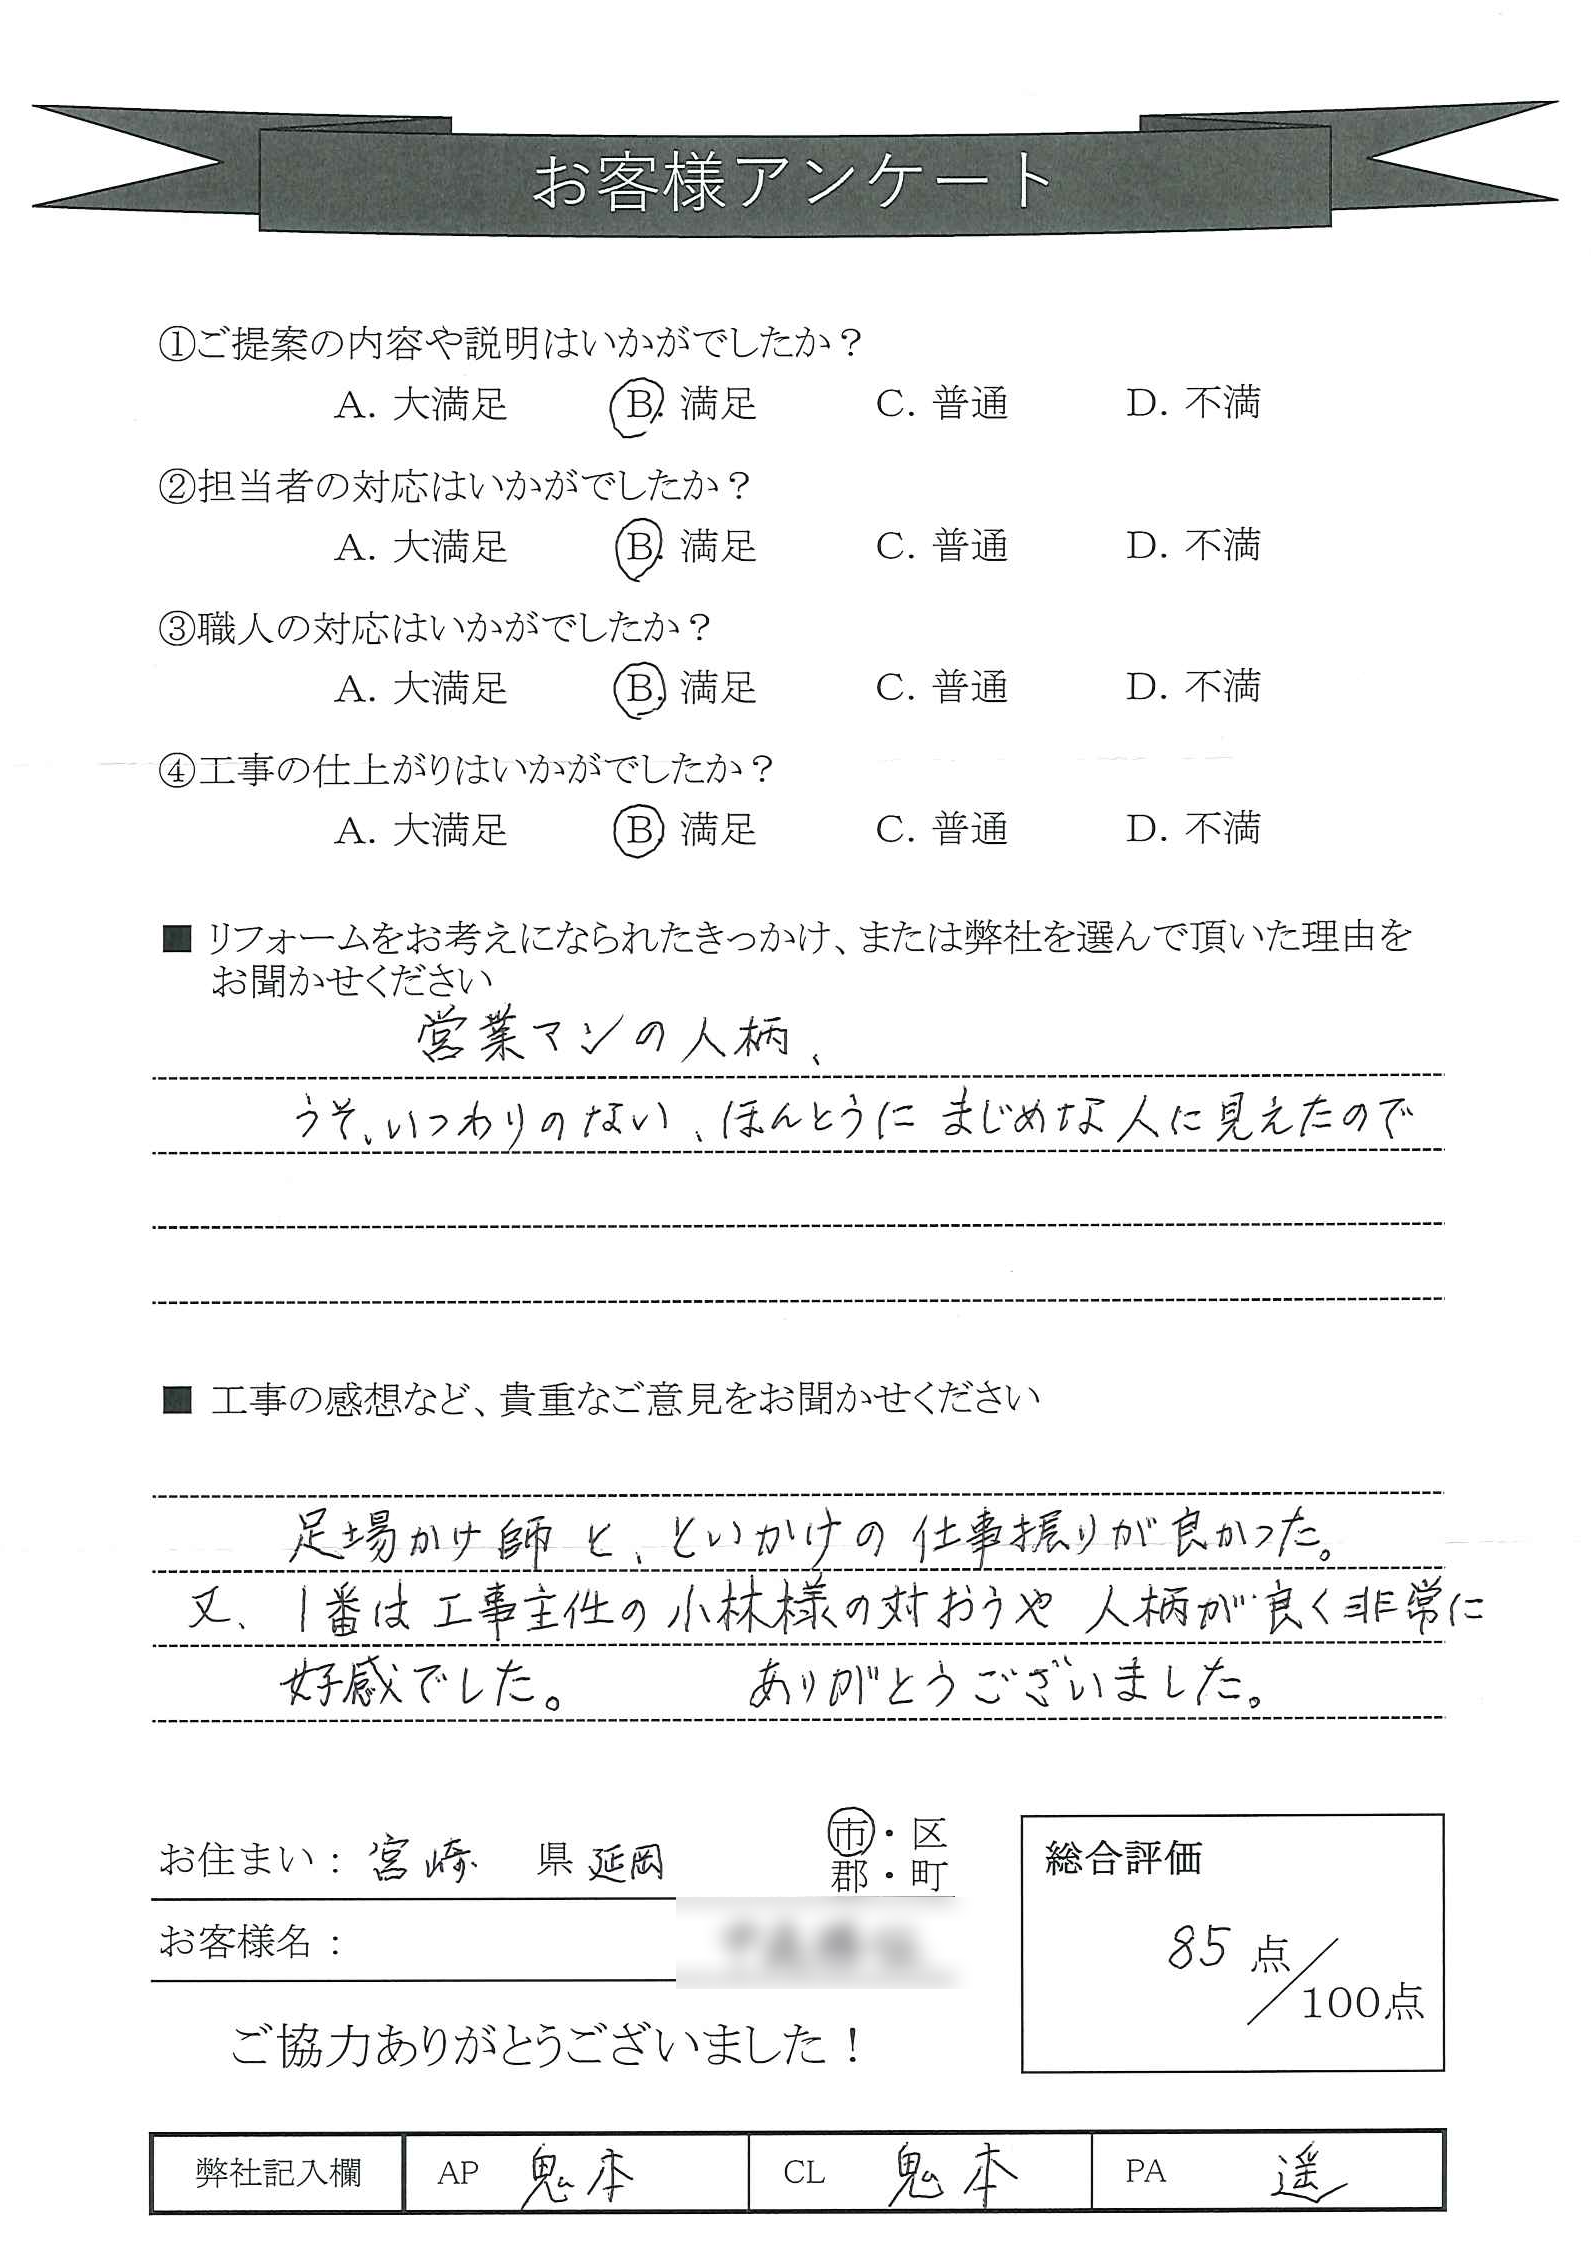 お客様アンケート
①ご提案の内容や説明はいかがでしたか？
A. 大満足 B. 満足 C. 普通 D. 不満
②担当者の対応はいかがでしたか？
A. 大満足 B. 満足 C. 普通 D. 不満
③職人の対応はいかがでしたか？
A. 大満足 B. 満足 C. 普通 D. 不満
④工事の仕上がりはいかがでしたか？
A. 大満足 B. 満足 C. 普通 D. 不満
■ リフォームをお考えになられたきっかけ、または弊社を選んで頂いた理由を
お聞かせください
営業マンの人柄、
うそ、いつわりのない、ほんとうに まじめな人に見えたので
■ 工事の感想など、貴重なご意見をお聞かせください
足場かけ師 と、といかけの 仕事振りが良かった。
又、1番は 工事主任の 小林様の対おうや 人柄が良く非常に
好感でした。 ありがとうございました。
お住まい： 宮崎 県 延岡 市・区
郡・町
お客様名：
総合評価
85 点／100点
ご協力ありがとうございました！
弊社記入欄 AP 鬼本 CL 鬼本 PA 遥